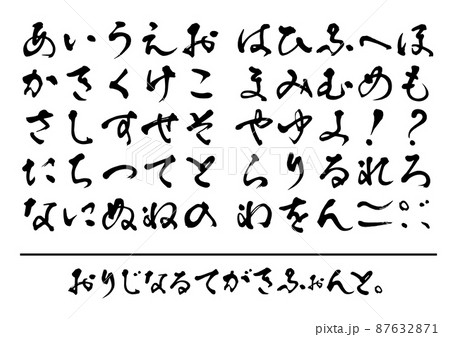 あいうえお はひふへほ
かきくけこ まみむめも
さしすせそ やゆよ！？
たちつてと らりるれろ
なにぬねの わをんー〜。、゛
おりじなるてがきふぉんと。
pixta.jp - 87632871